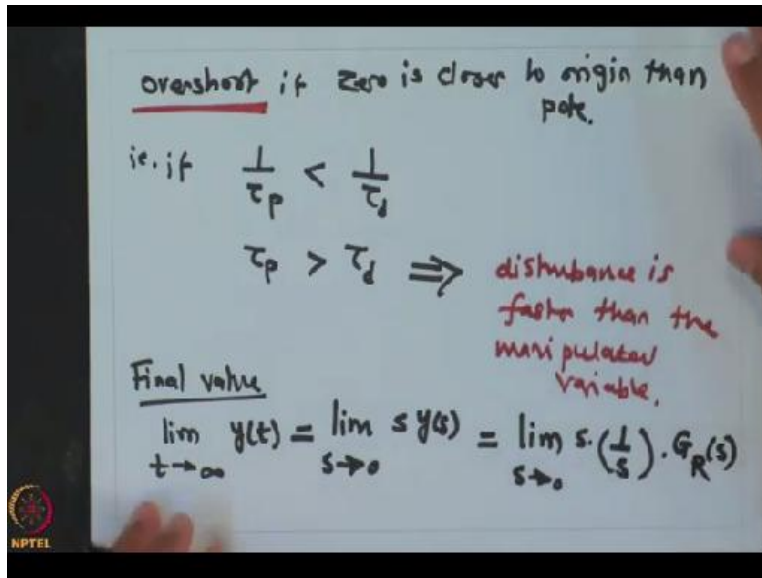 overshoot if zero is closer to origin than
pole.
ie. if 1/τp < 1/τd
τp > τd ⇒ disturbance is
faster than the
manipulated
variable.
Final value
lim t→∞ y(t) = lim s→0 s y(s) = lim s→0 s. (1/s) . G_R(s)
NPTEL